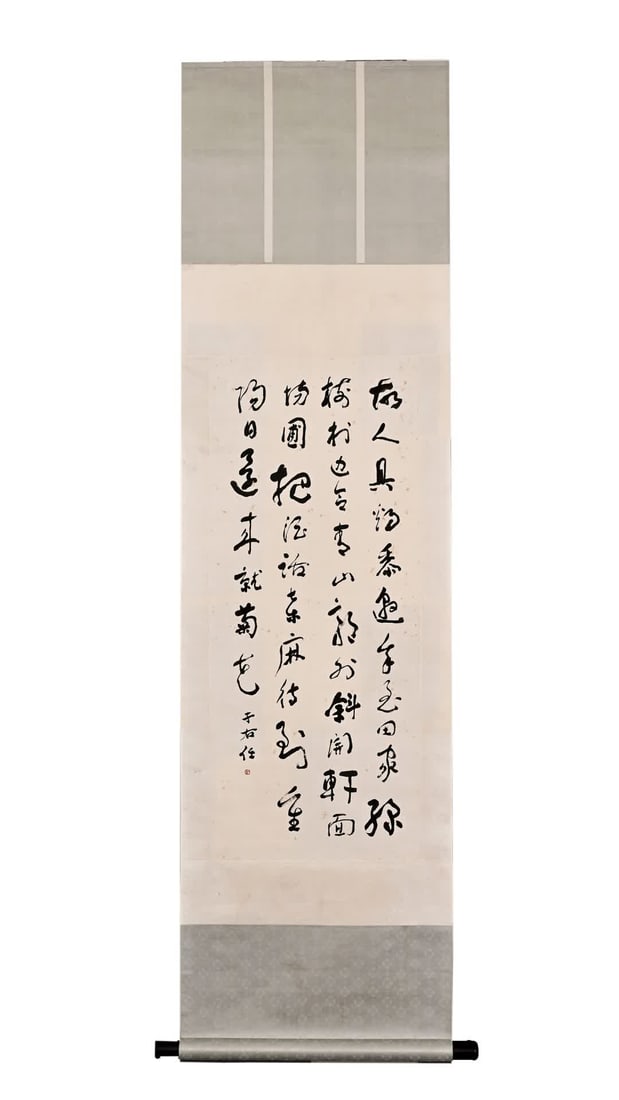 故人具雞黍邀我至田家綠
樹村邊合青山郭外斜開軒面
場圃把酒話桑麻待到重
陽日還來就菊花
于右任